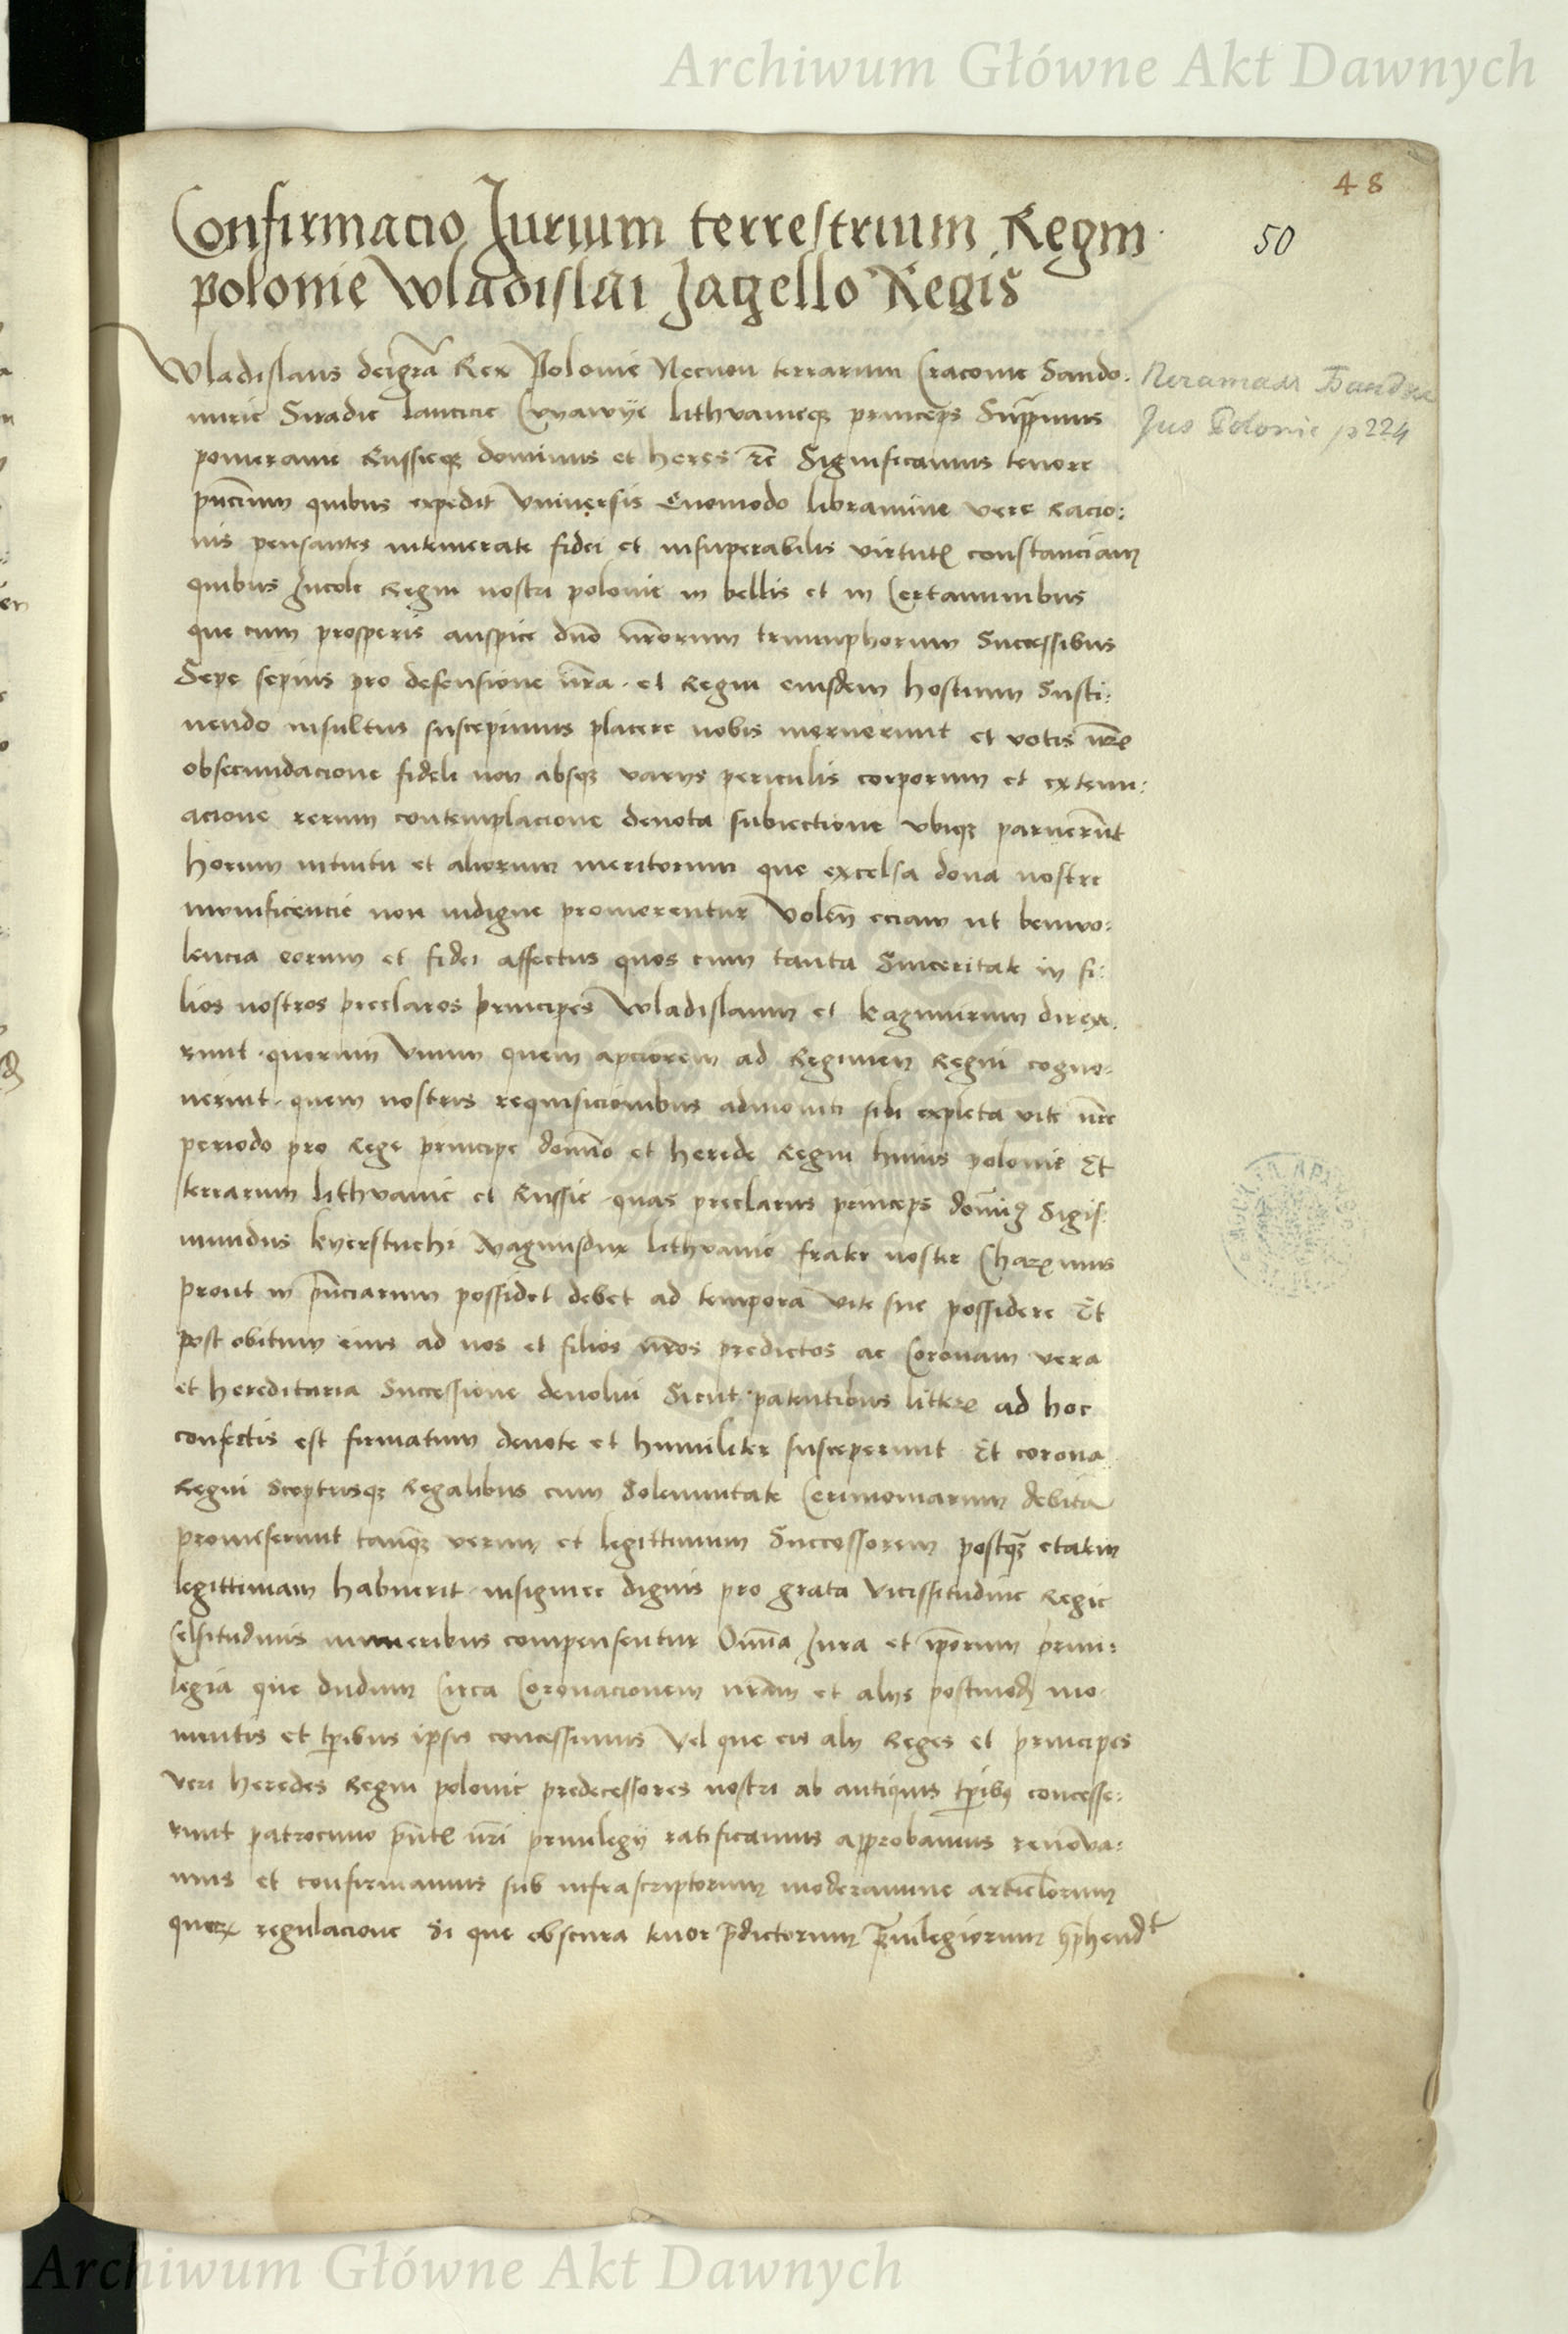 Archiwum Główne Akt Dawnych
48
50
Confirmacio Jurium terrestrium Regni
polonie Wladislai Jagello Regis
Wladislaus dei gr̃a Rex Polonie Necnon terrarum Cracovie Sando:
mirie Siradie lancicie Cuyawije lithvanieq3 princeps Supp̃mus
pomeranie Russieq3 dominus et heres et̃c Significamus tenore
pñcium quibus expedit Vniversis Quomodo libramine vere racio:
nis pensantes intemerate fidei et insuperabilis virtutꝭ constanciam
quibus Incole Regni nostri polonie in bellis et in Certaminibus
que cum prosperis auspice dño nr̃orum triumphorum Successibus
Sepe sepius pro defensione nr̃a et Regni eiusdem hostium Susti:
nendo insultus suscepimus placere nobis meruerunt et votis nr̃e
obsecundacione fideli non absq3 varijs periculis corporum et extenu:
acione rerum contemplacione devota subiectione vbiq3 paruerũt
horum intuitu et aliorum meritorum que excelsa dona nostre
munificencie non indigne promerentur Voleñ eciam ut benivo:
lencia eorum et fidei affectus quos cum tanta Sinceritate in fi:
lios nostros preclaros principes Wladislaum et kazimirum direxe.
runt quorum Vnum quem apciorem ad Regimen Regni cogno-
verint quem nostris requisicionibus admoniti sibi expleta vite nr̃e
periodo pro Rege principe domĩo et herede Regni huius polonie Et
terrarum lithvanie et Russie quas preclarus princeps domiñ9 Sigis:
mundus kyerstuchi Magnusdux lithvanie frater noster Charꝭimus
prout in pñciarum possidet debet ad tempora vite sue possidere Et
post obitum eius ad nos et filios nr̃os predictos ac Coronam vera
et hereditaria Successione devolui Sicut patentibus litterꝭ ad hoc
confectis est firmatum devote et humiliter susceperunt Et corona
Regni Sceptrisq3 Regalibus cum Solennitate Cerimoniarum debita
promiserunt tanq̃3 verum et legittimum Successorem postq̃3 etatem
legittimam habuerit insignire dignis pro grata Vicissitudine Regie
Celsitudinis muneribus compensentur Om̃ia Jura et ip̃orum privi:
legia que dudum Circa Coronacionem nr̃am et alijs postmodꝭ mo-
mentis et tp̃ribus ipsis concessimus Vel que eis alij Reges et principes
Veri heredes Regni polonie predecessores nostri ab antiquis tp̃rib9 concesse:
runt patrocinio pñtꝭ nr̃i privilegij ratificamus approbamus renova:
mus et confirmamus sub infrascriptorum moderamine articl̃orum
quorꝭ regulacione Si que obscura tenor p̃dictorum p̃vilegiorum 9p̃hendt
Jus Polonie p 224
Archiwum Główne Akt Dawnych